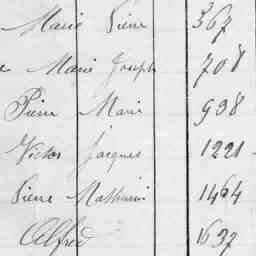 Marie Pierre 367
Marie Joseph 708
Pierre Marie 938
Victor Jacques 1221
Pierre Mathurin 1464
Alfred 1637